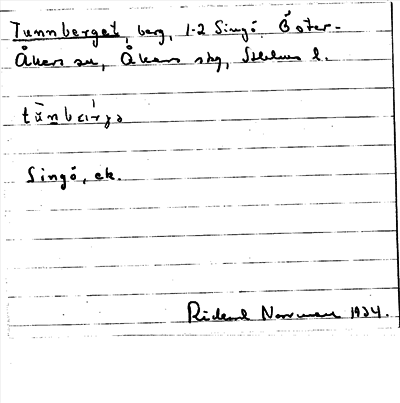 Tunnberget, berg, 1-2 Singö. Öster-
Åkers sn, Åkers skg, Sthlms l.
Singö, ek.
Rickard Norrman 1934.